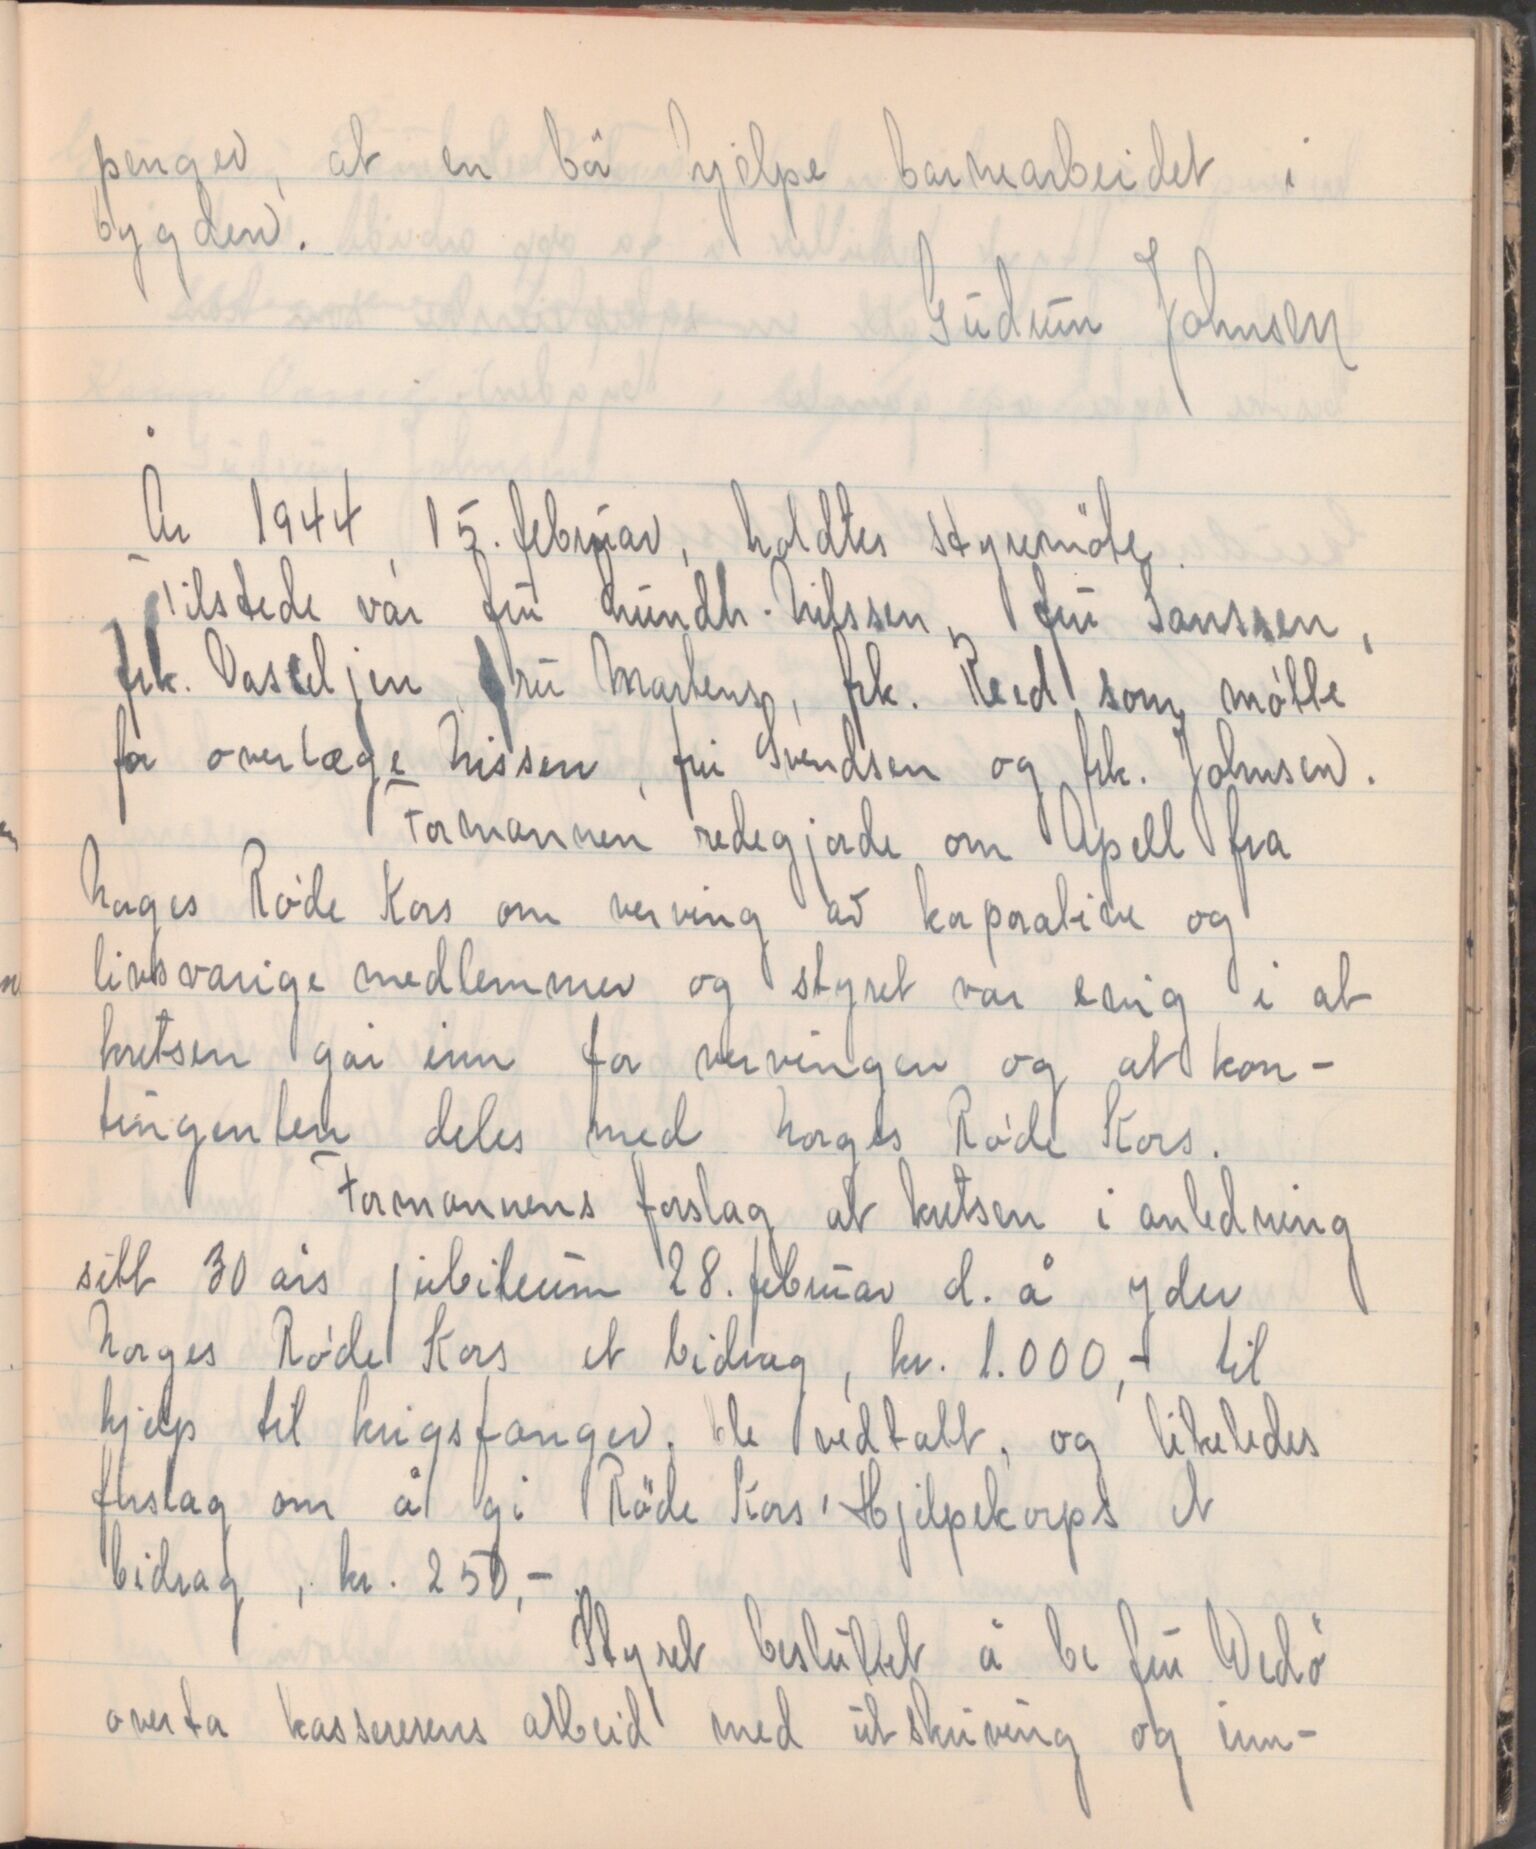 penger, at en bör hjelpe barnearbeidet i
bygden.
Gudrun Johnsen
År 1944, 15. februar, holdtes styremöte.
Tilstede var fru Lundh-Nilssen, fru Janssen,
frk. Vasseljen, fru Martens, frk. Reed som møtte
for overlæge Nissen, fru Svendsen og frk. Johnsen.
Formannen redegjorde om Apell fra
Norges Røde Kors om verving av korporative og
livsvarige medlemmer og styret var enig i at
kretsen går inn for vervingen og at kon-
tingenten deles med Norges Røde Kors.
Formannens forslag at kretsen i anledning
sitt 30 års jubileum 28. februar d. å yder
Norges Røde Kors et bidrag, kr. 1.000,- til
hjelp til krigsfanger, ble vedtatt, og likeledes
forslag om å gi Röde Kors' Hjelpekorps et
bidrag, kr. 250,-.
Styret besluttet å be fru Wedö
overta kassererens arbeid med utskriving og inn-